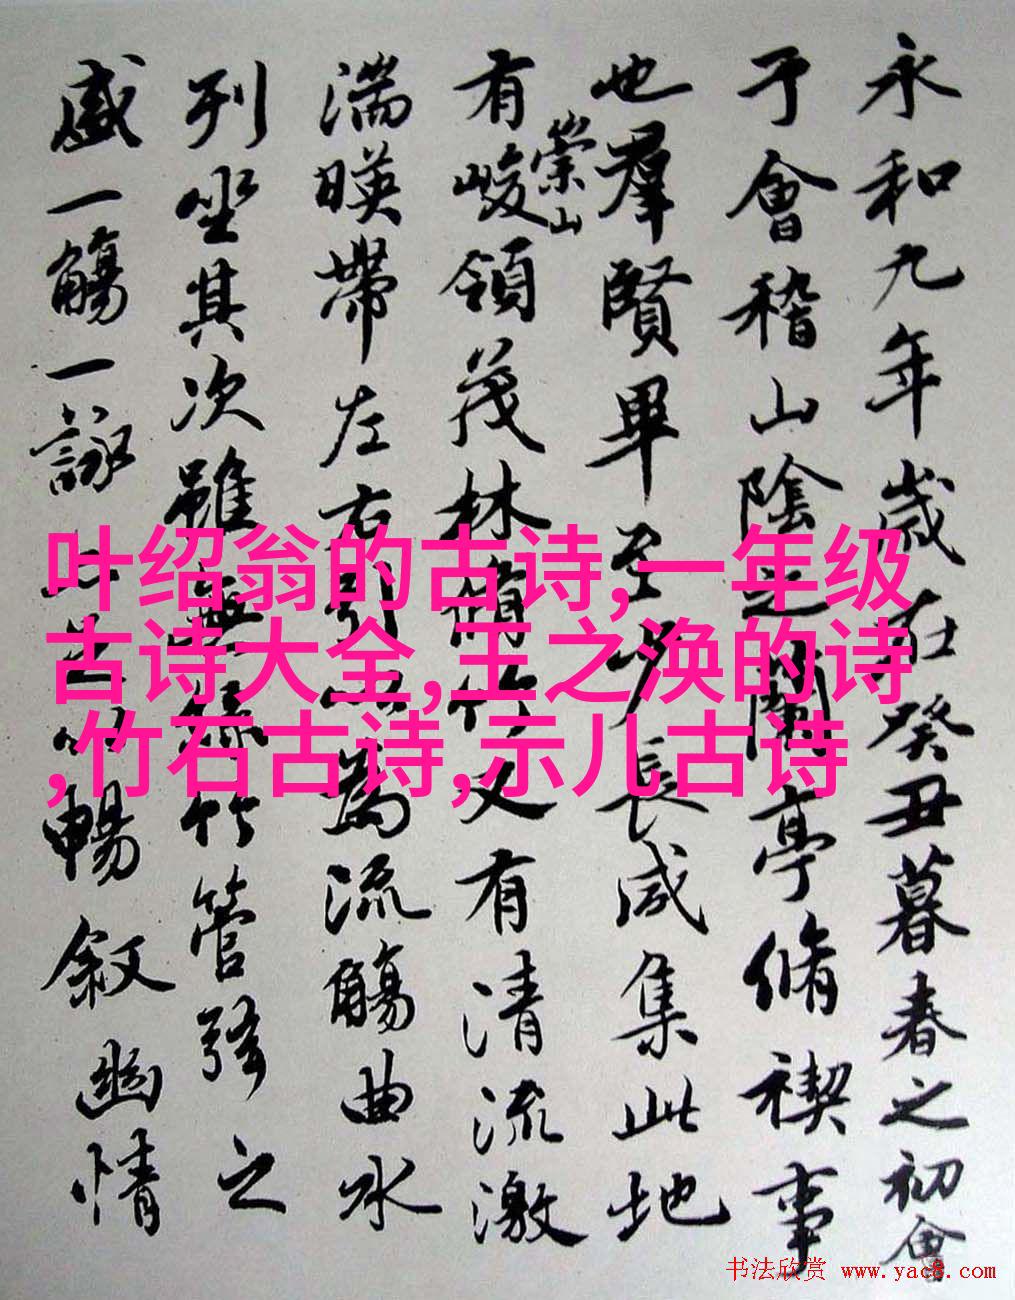 永和九年歲在癸丑暮春之初會
于會稽山陰之蘭亭脩禊事
也羣賢畢至少長咸集此地
有崇山峻領茂林脩竹又有清流激
湍暎帶左右引以為流觴曲水
列坐其次雖無絲竹管弦之
盛一觴一詠亦足以暢敘幽情
叶绍翁的古诗,一年级
古诗大全,王之涣的诗
,竹石古诗,示儿古诗
书法欣赏 www.yac8.com